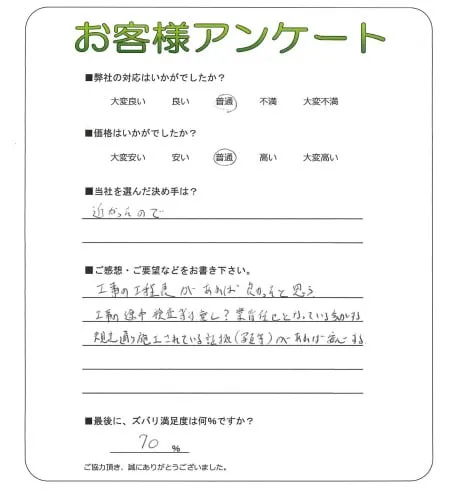 お客様アンケート
■弊社の対応はいかがでしたか？
大変良い 良い 普通 不満 大変不満
■価格はいかがでしたか？
大変安い 安い 普通 高い 大変高い
■当社を選んだ決め手は？
近かったので
■ご感想・ご要望などをお書き下さい。
工事の工程表があれば良かったと思う
工事の途中検査等は無し？業者任せとなっている気がする
規定通り施工されている証拠(写真等)があれば安心する
■最後に、ズバリ満足度は何％ですか？
70 ％
ご協力頂き、誠にありがとうございました。